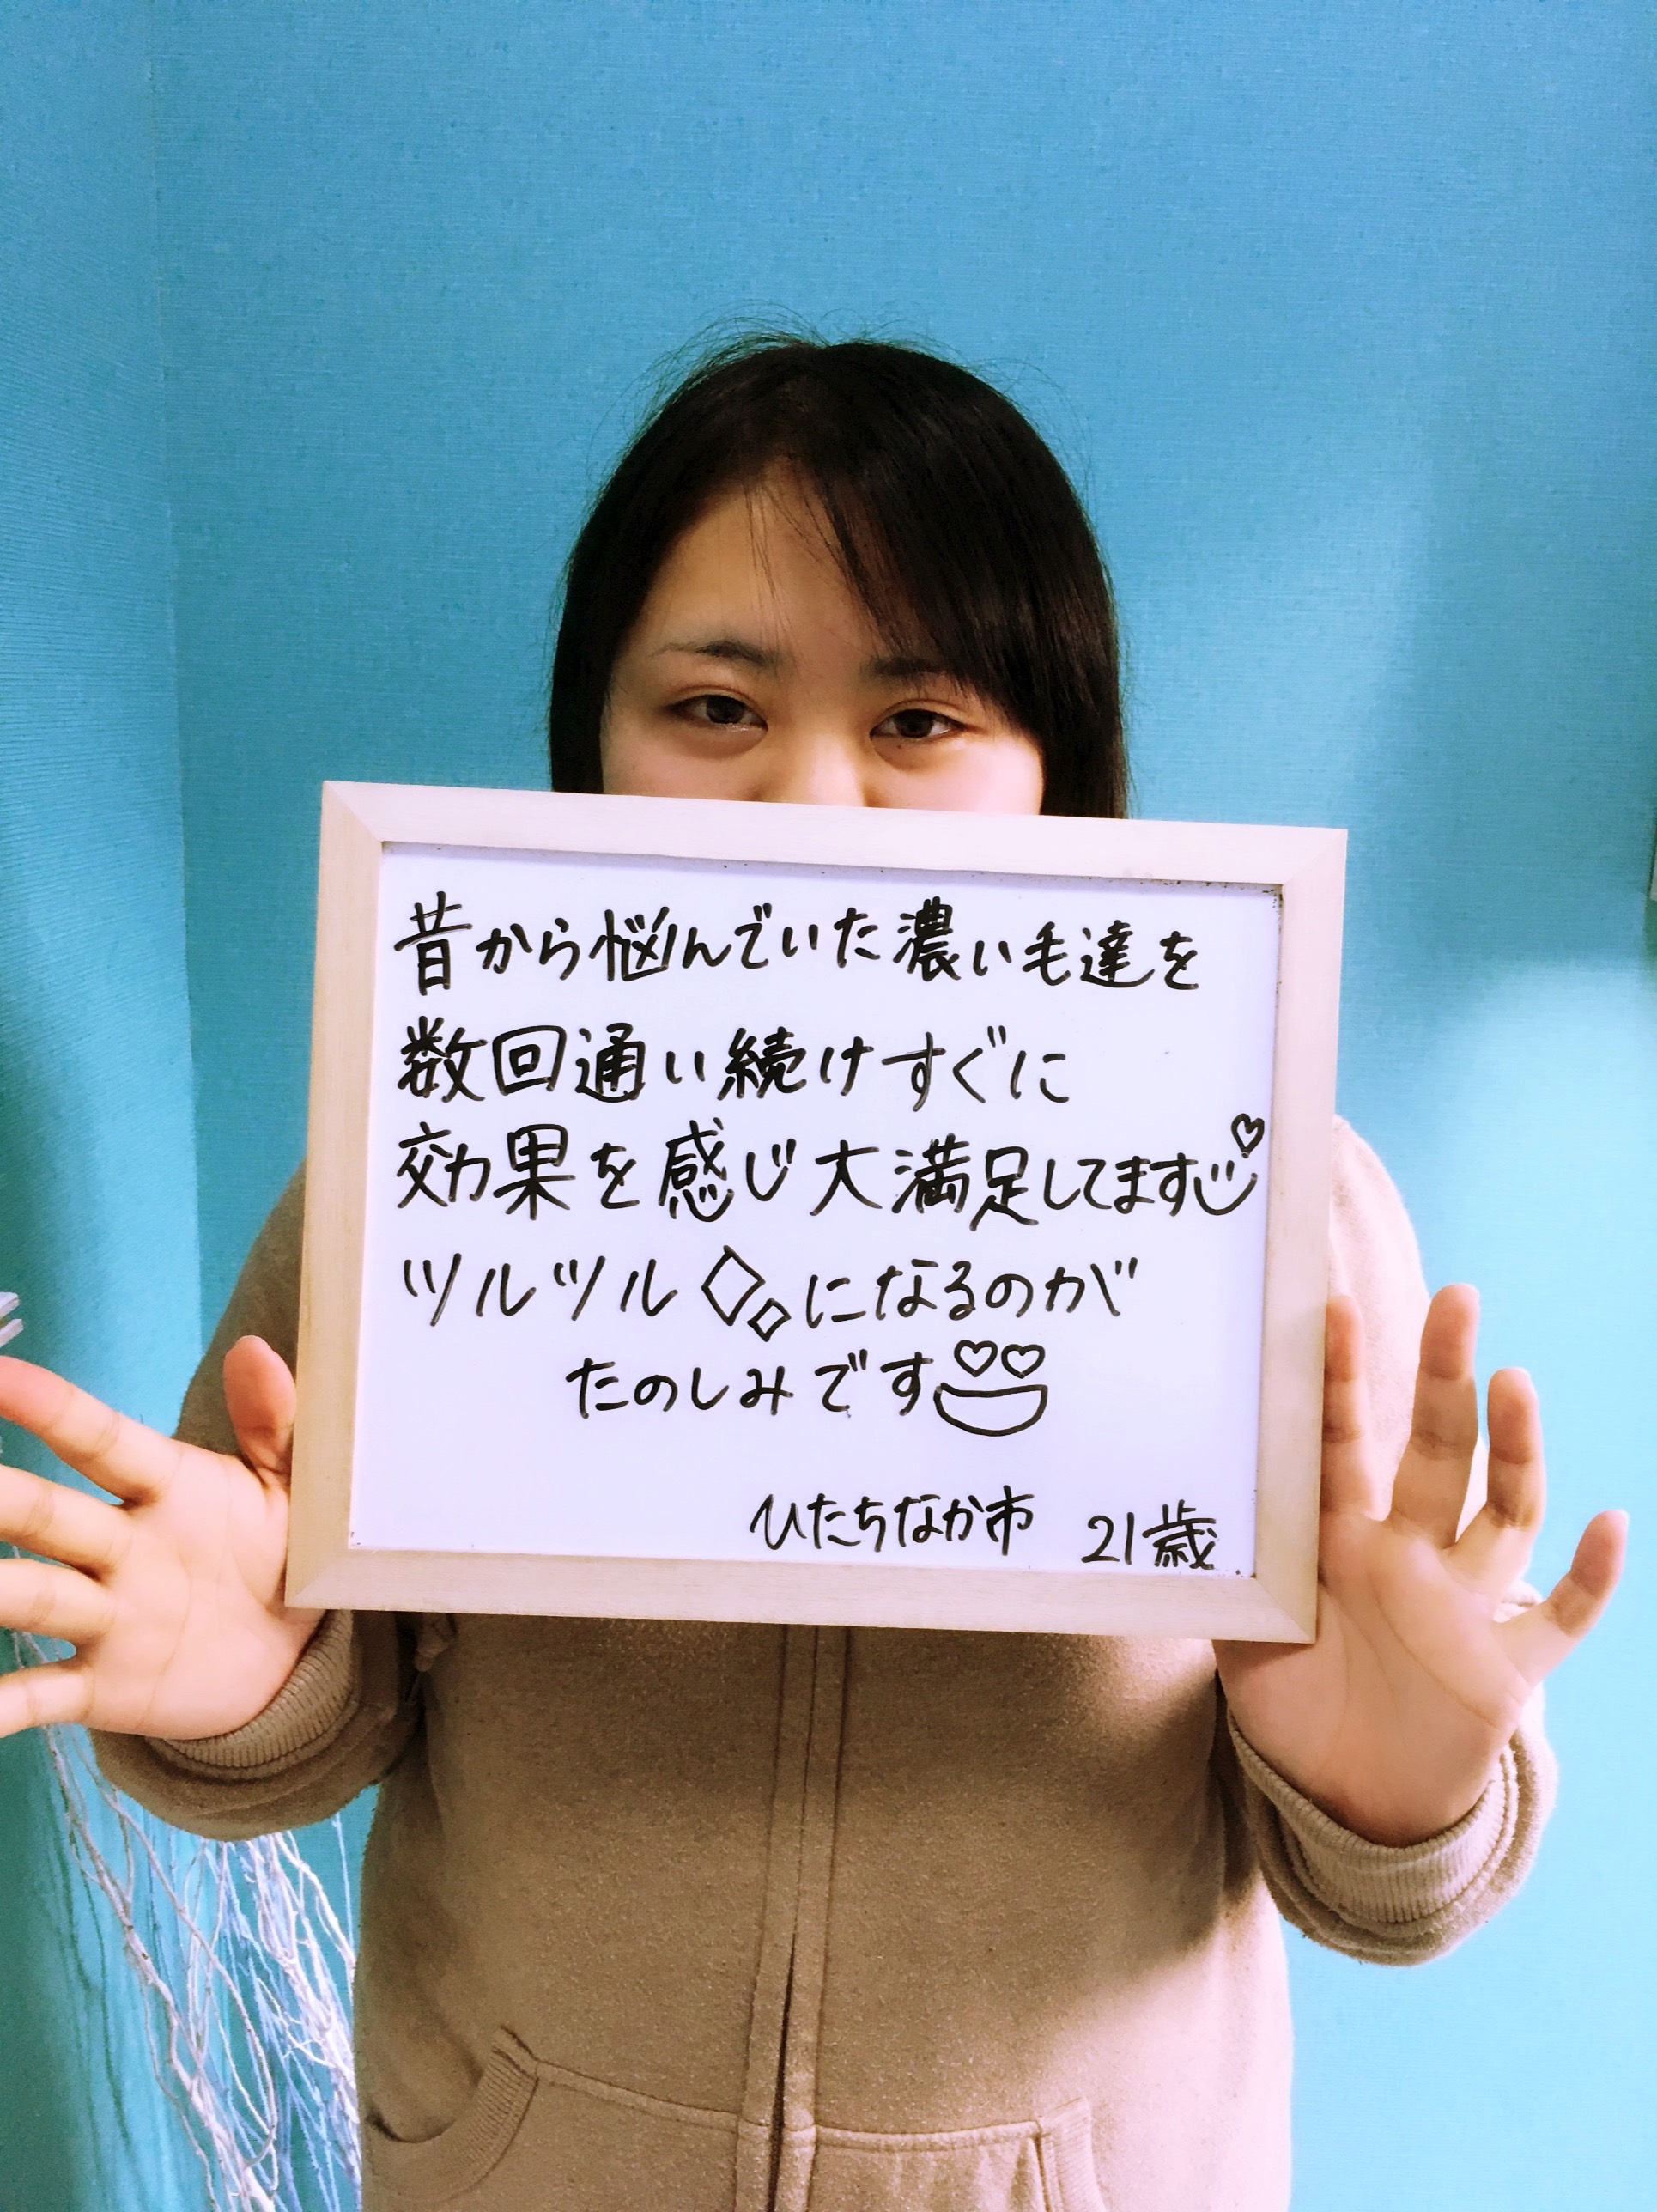 昔から悩んでいた濃い毛達を
数回通い続けすぐに
効果を感じ大満足してます
ツルツルになるのが
たのしみです
ひたちなか市 21歳